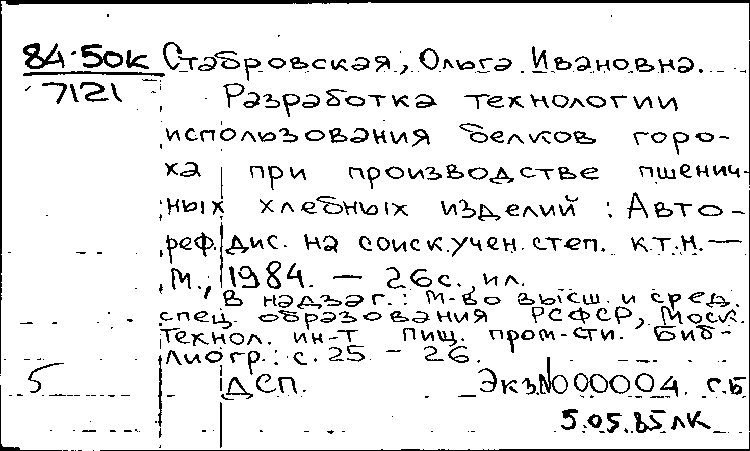 84-50к Стабровская, Ольга Ивановна.
7121 Разработка технологии
использования белков горо-
ха при производстве пшенич-
ных хлебных изделий : Авто-
реф. дис. на соиск. учен. степ. к.т.н. —
М., 1984. — 26 с., ил.
В надзаг.: М-во высш. и сред.
спец. образования РСФСР, Моск.
технол. ин-т пищ. пром-сти. Биб-
лиогр.: с. 25 - 26.
5 ДСП. Экз. N000004. с.б
5.05.85 лк